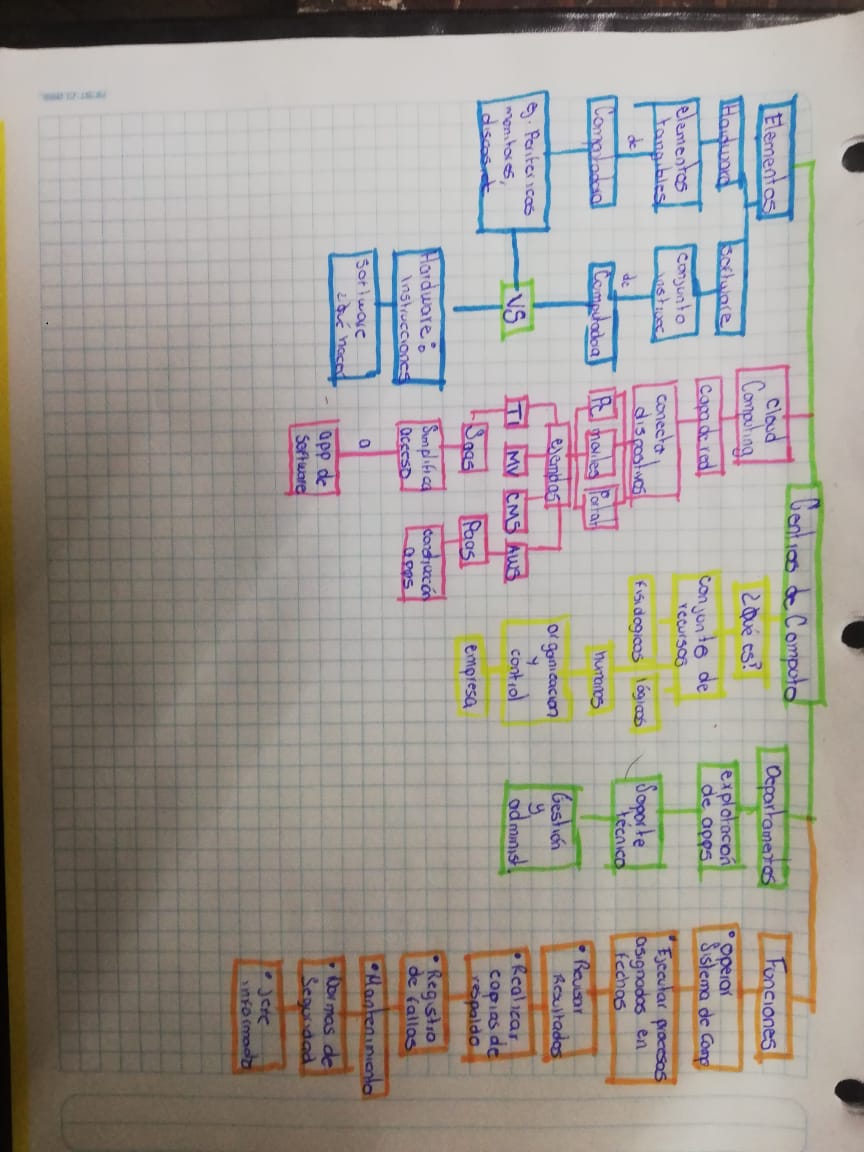 Centros de Computo
Elementos
Hardward
elementos
tangibles
de
Computadora
ej. Perifericos
monitores,
discos
Software
conjunto
instruc
de
Computadora
VS
Hardware:
instrucciones
Software
¿Qué hacer
Cloud
Computing
Capa de red
conecta
dispositivos
PC
moviles
Portat
ejemplos
TI
MV
CMS
AWS
Saas
Simplifica
acceso
a
app de
software
Paas
construcción
apps
¿Qué es?
Conjunto de
recursos
fisiologicos
lógicos
humanos
organizacion
y
control
empresa
Departamentos
explotación
de apps
Soporte
técnico
Gestión
y
administ.
Funciones
• operar
Sistema de Comp
• Ejecutar procesos
asignados en
fechas
• Revisar
Resultados
• Realizar
copias de
respaldo
• Registro
de fallas
• Mantenimiento
• Normas de
Seguridad
• Jefe
informado